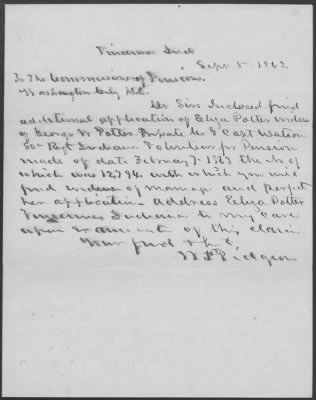 Vincennes Ind
Sept 8th 1863.
To The Commissioner of Pensions.
Washington City D.C.
Dr Sirs Inclosed find
additional application of Eliza Potter widow
of George W Potter. Private in Capt Watson
80th Regt Indiana Volunteers for Pension
made of date February 7th 1863 the No of
which was 12,794. with which you will
find evidence of marriage and perfect
her application. Address Eeliza Potter
Vincennes Indiana in my Care
upon examination of this claim
Your frnd &